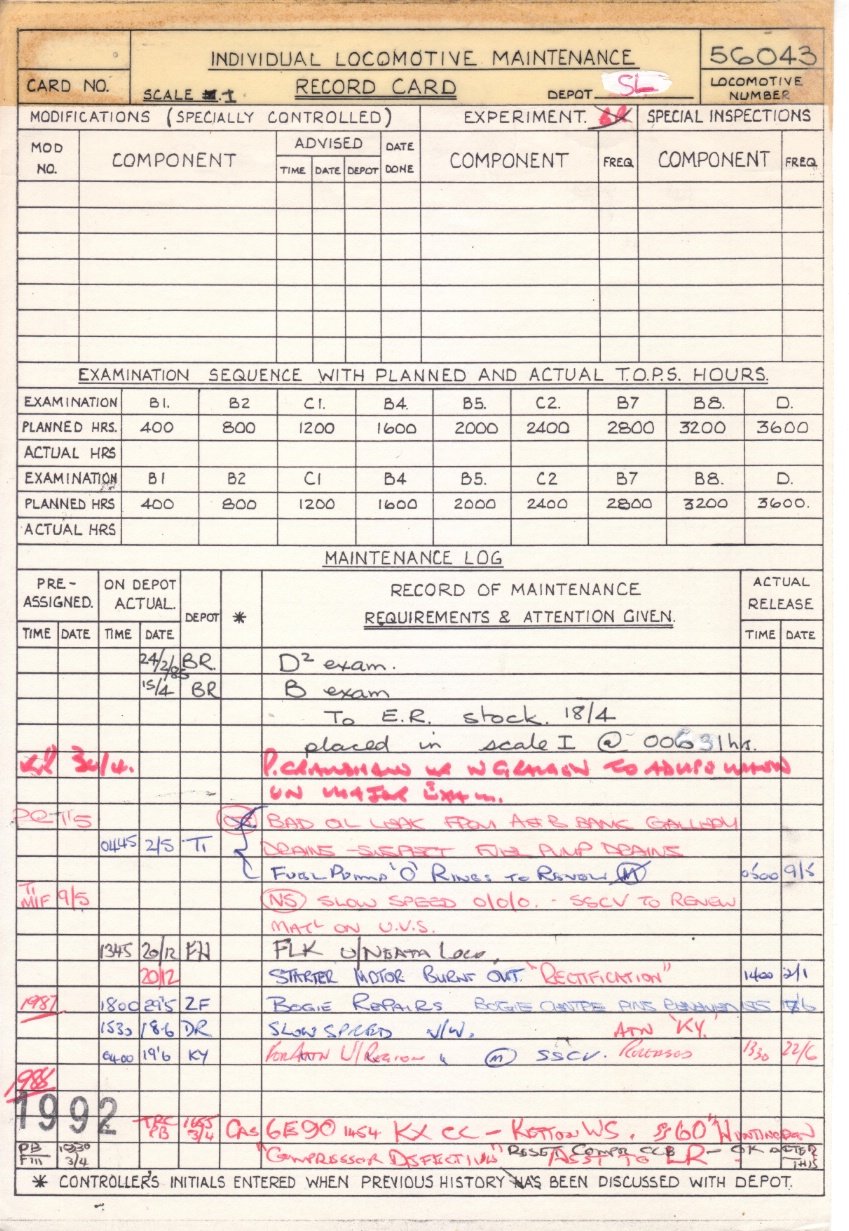 INDIVIDUAL LOCOMOTIVE MAINTENANCE
56043
CARD NO.
SCALE 1
RECORD CARD
DEPOT SL
LOCOMOTIVE NUMBER
MODIFICATIONS (SPECIALLY CONTROLLED)
EXPERIMENT.
SPECIAL INSPECTIONS
MOD NO.
COMPONENT
ADVISED
DATE DONE
COMPONENT
FREQ
COMPONENT
FREQ
TIME DATE DEPOT
EXAMINATION SEQUENCE WITH PLANNED AND ACTUAL T.O.P.S. HOURS.
EXAMINATION B1. B2 C1. B4. B5. C2. B7 B8. D.
PLANNED HRS. 400 800 1200 1600 2000 2400 2800 3200 3600
ACTUAL HRS
EXAMINATION B1 B2 C1 B4 B5. C2 B7 B8. D.
PLANNED HRS 400 800 1200 1600 2000 2400 2800 3200 3600.
ACTUAL HRS
MAINTENANCE LOG
PRE-ASSIGNED.
ON DEPOT ACTUAL.
DEPOT
*
RECORD OF MAINTENANCE
REQUIREMENTS & ATTENTION GIVEN.
ACTUAL RELEASE
TIME DATE TIME DATE TIME DATE
24/2/85 BR. D2 exam.
15/4 BR B exam
To E.R. stock. 18/4
placed in scale I @ 00631hrs.
30/4.
ON MAJOR EXAM.
BAD OIL LEAK FROM A&B BANK GALLERY
0445 2/5 TI DRAINS - SUSPECT FUEL PUMP DRAINS
FUEL PUMP 'O' RINGS TO RENEW M 0500 9/5
TI MIF 9/5 NS SLOW SPEED 0/0/0. - SSCV TO RENEW
MAT'L ON U.V.S.
1345 20/12 FH FLK
20/12 STARTER MOTOR BURNT OUT. "RECTIFICATION" 1400 2/1
1987 1800 29'5 ZF BOGIE REPAIRS BOGIE CENTRE PINS
1530 18'6 DR SLOW SPEED ATN 'KY.'
0400 19'6 KY For Attn M SSCV. Released 1330 22/6
1988
1992
TRC PB 1655 3/4 CAS 6E90 1454 KX CC - KETTON WS.
PB 1930 3/4 "COMPRESSOR DEFECTIVE" RESET COMPR CCB - OK AFTER THIS
* CONTROLLER'S INITIALS ENTERED WHEN PREVIOUS HISTORY HAS BEEN DISCUSSED WITH DEPOT.